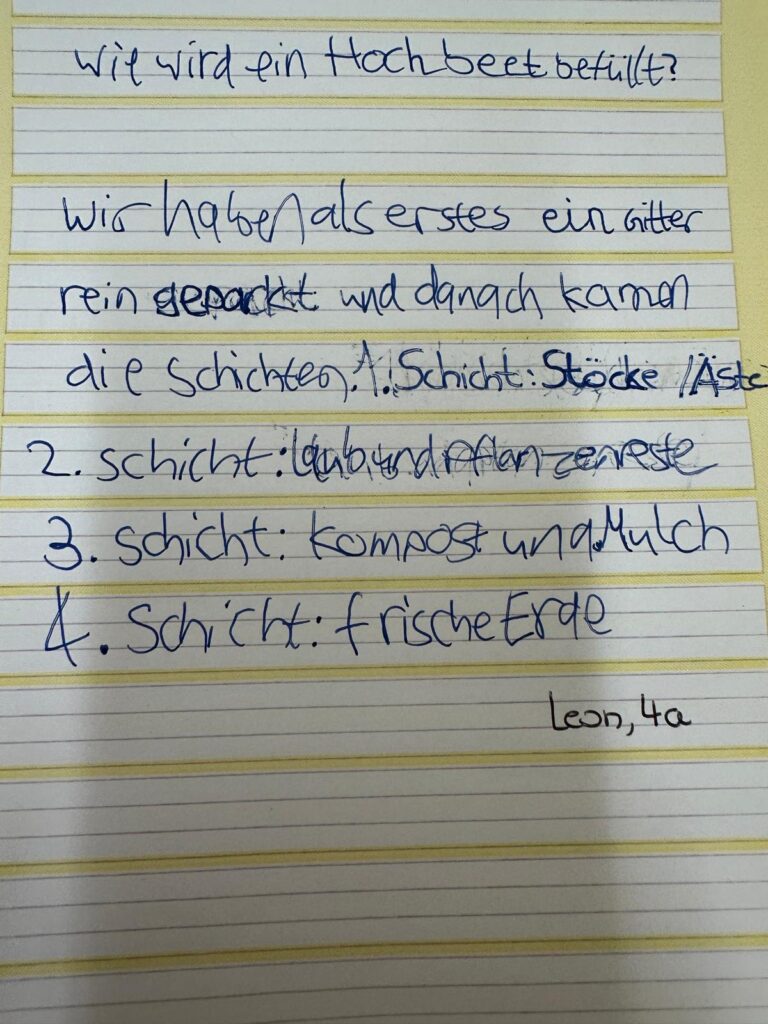 Wie wird ein Hochbeet befüllt?
Wir haben als erstes ein Gitter
rein gepackt und danach kamen
die Schichten. 1. Schicht: Stöcke /Äste
2. Schicht: Laub und Pflanzenreste
3. Schicht: Kompost und Mulch
4. Schicht: frische Erde
Leon, 4a